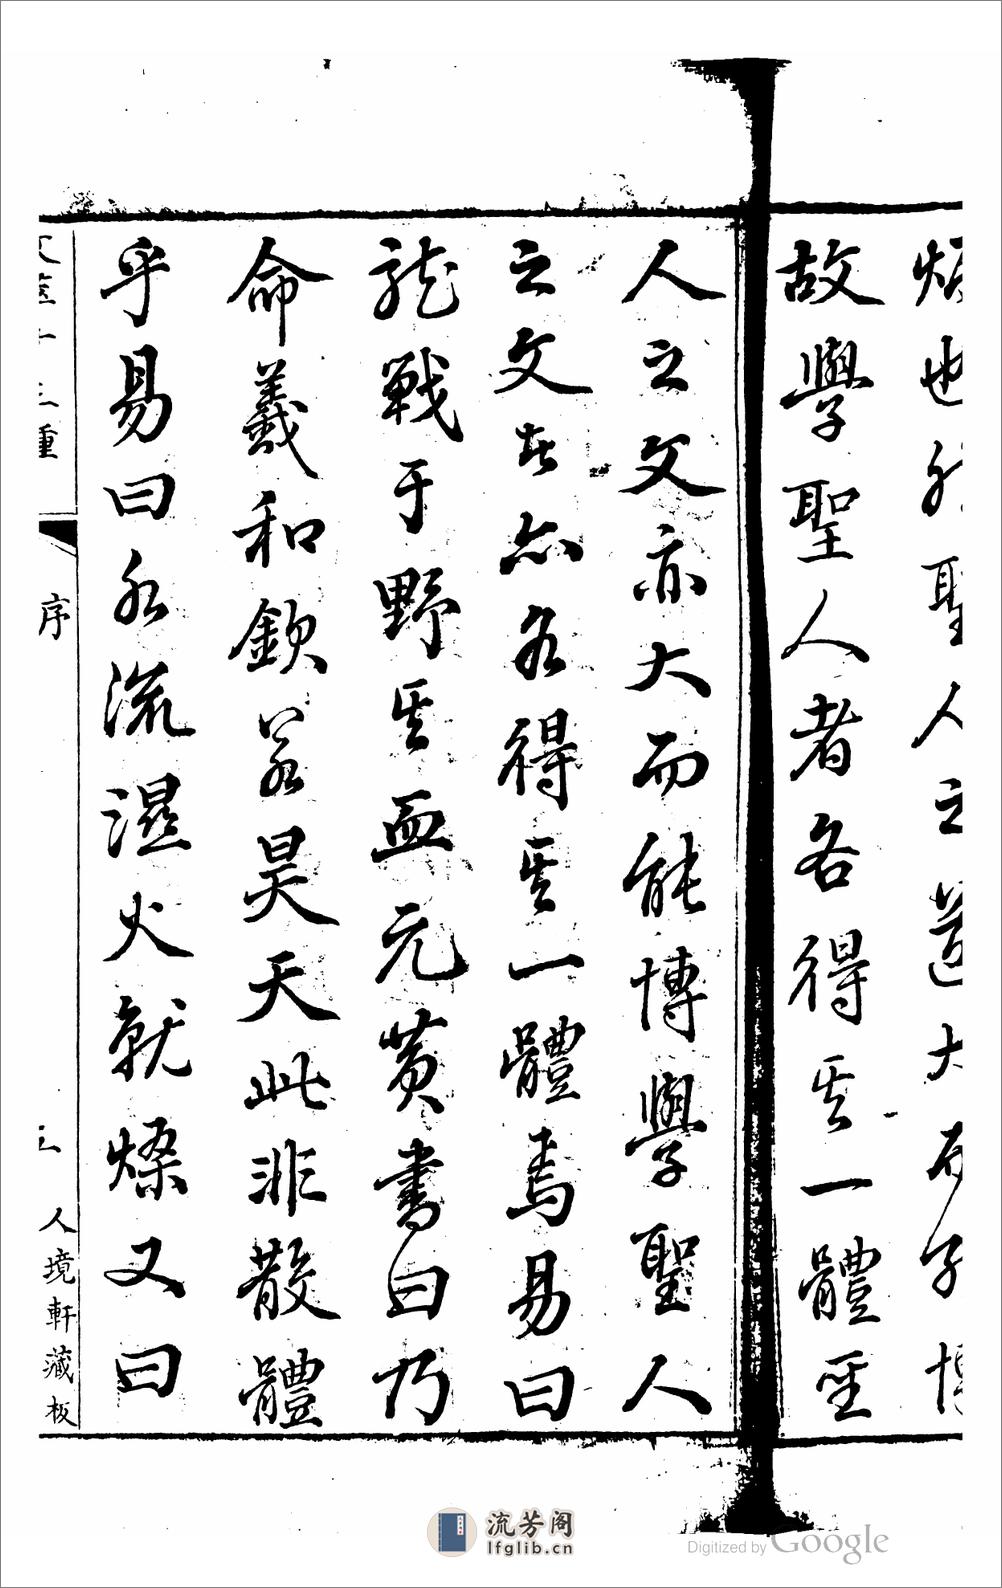 也聖人之道大博
故學聖人者各得其一體聖
人之文亦大而能博學聖人
之文者亦各得其一體焉易曰
龍戰于野其血元黄書曰乃
命羲和欽若昊天此非散體
乎易曰水流濕火就燥又曰
種
序
人境軒藏板
流芳阁
lfglib.cn
Digitized by Google